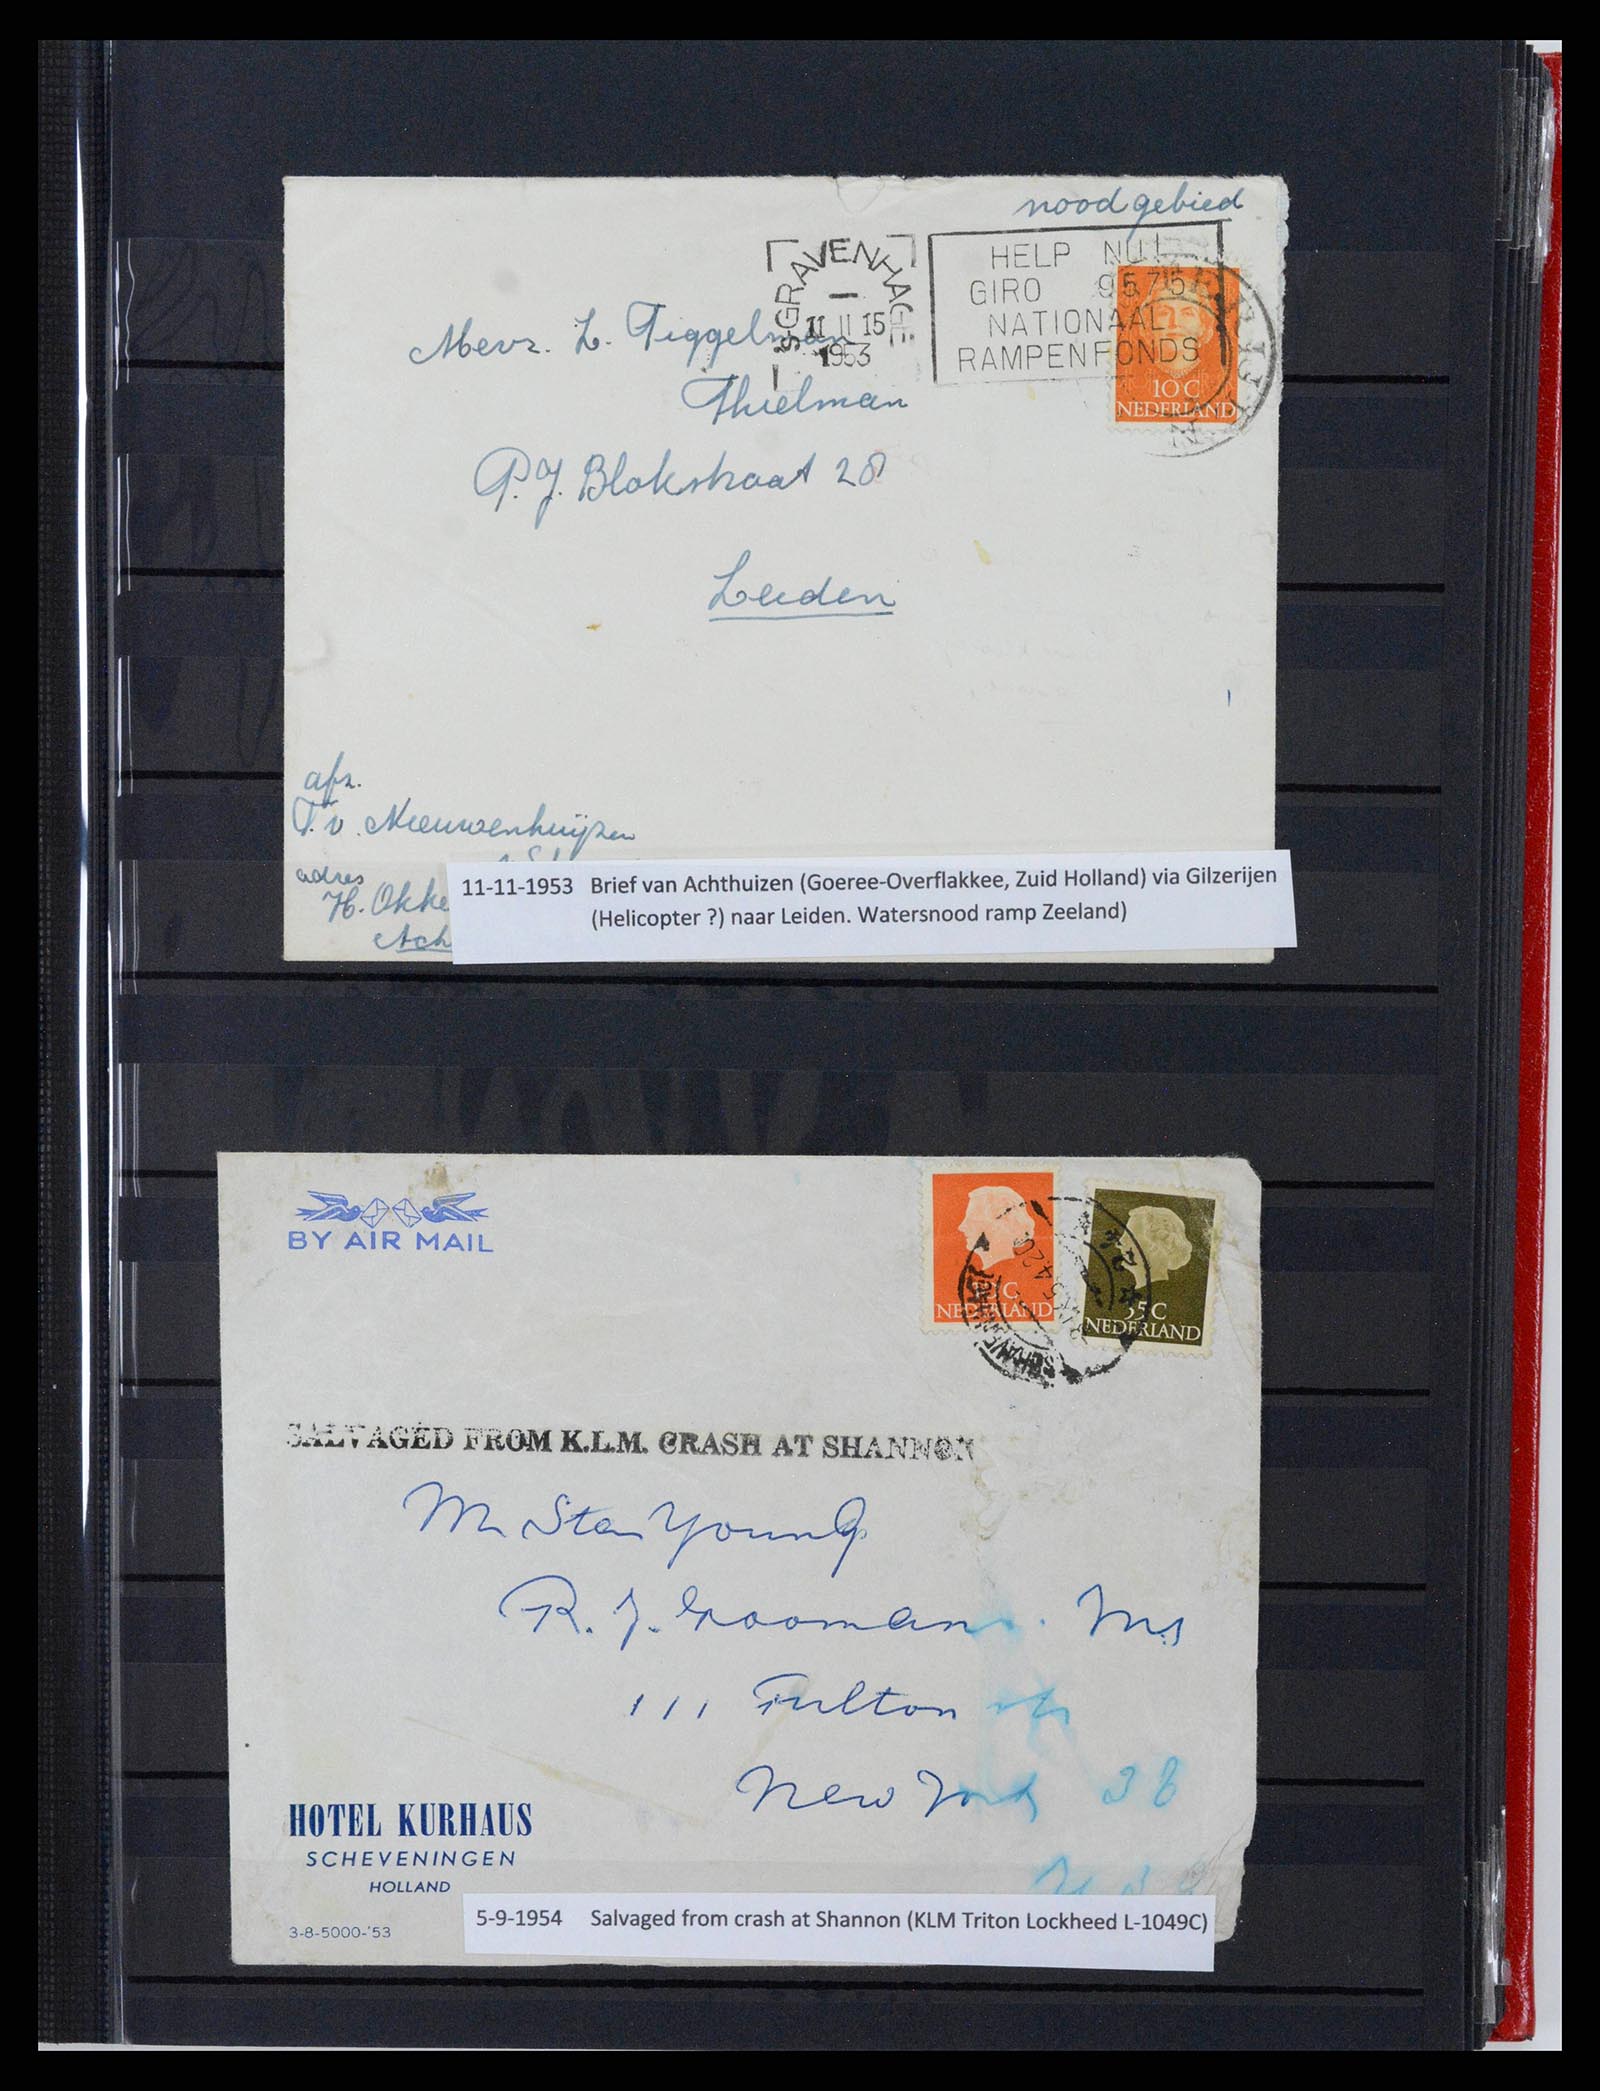 noodgebied
'S-GRAVENHAGE
11 II 15
1953
HELP NU!
GIRO 9575
NATIONAAL
RAMPENFONDS
10 C
NEDERLAND
Mevr. L. Tiggelman
Thielman
P.J. Blokstraat 28
Leiden
afz.
T. v. Nieuwenhuijzen
adres
H. Okke
Ach
11-11-1953 Brief van Achthuizen (Goeree-Overflakkee, Zuid Holland) via Gilzerijen
(Helicopter ?) naar Leiden. Watersnood ramp Zeeland)
BY AIR MAIL
C
NEDERLAND
35 C
NEDERLAND
SALVAGED FROM K.L.M. CRASH AT SHANNON
Mr Stan Young
R. J. Gooman
111 Fulton str
New York 38
HOTEL KURHAUS
SCHEVENINGEN
HOLLAND
3-8-5000-'53
5-9-1954 Salvaged from crash at Shannon (KLM Triton Lockheed L-1049C)